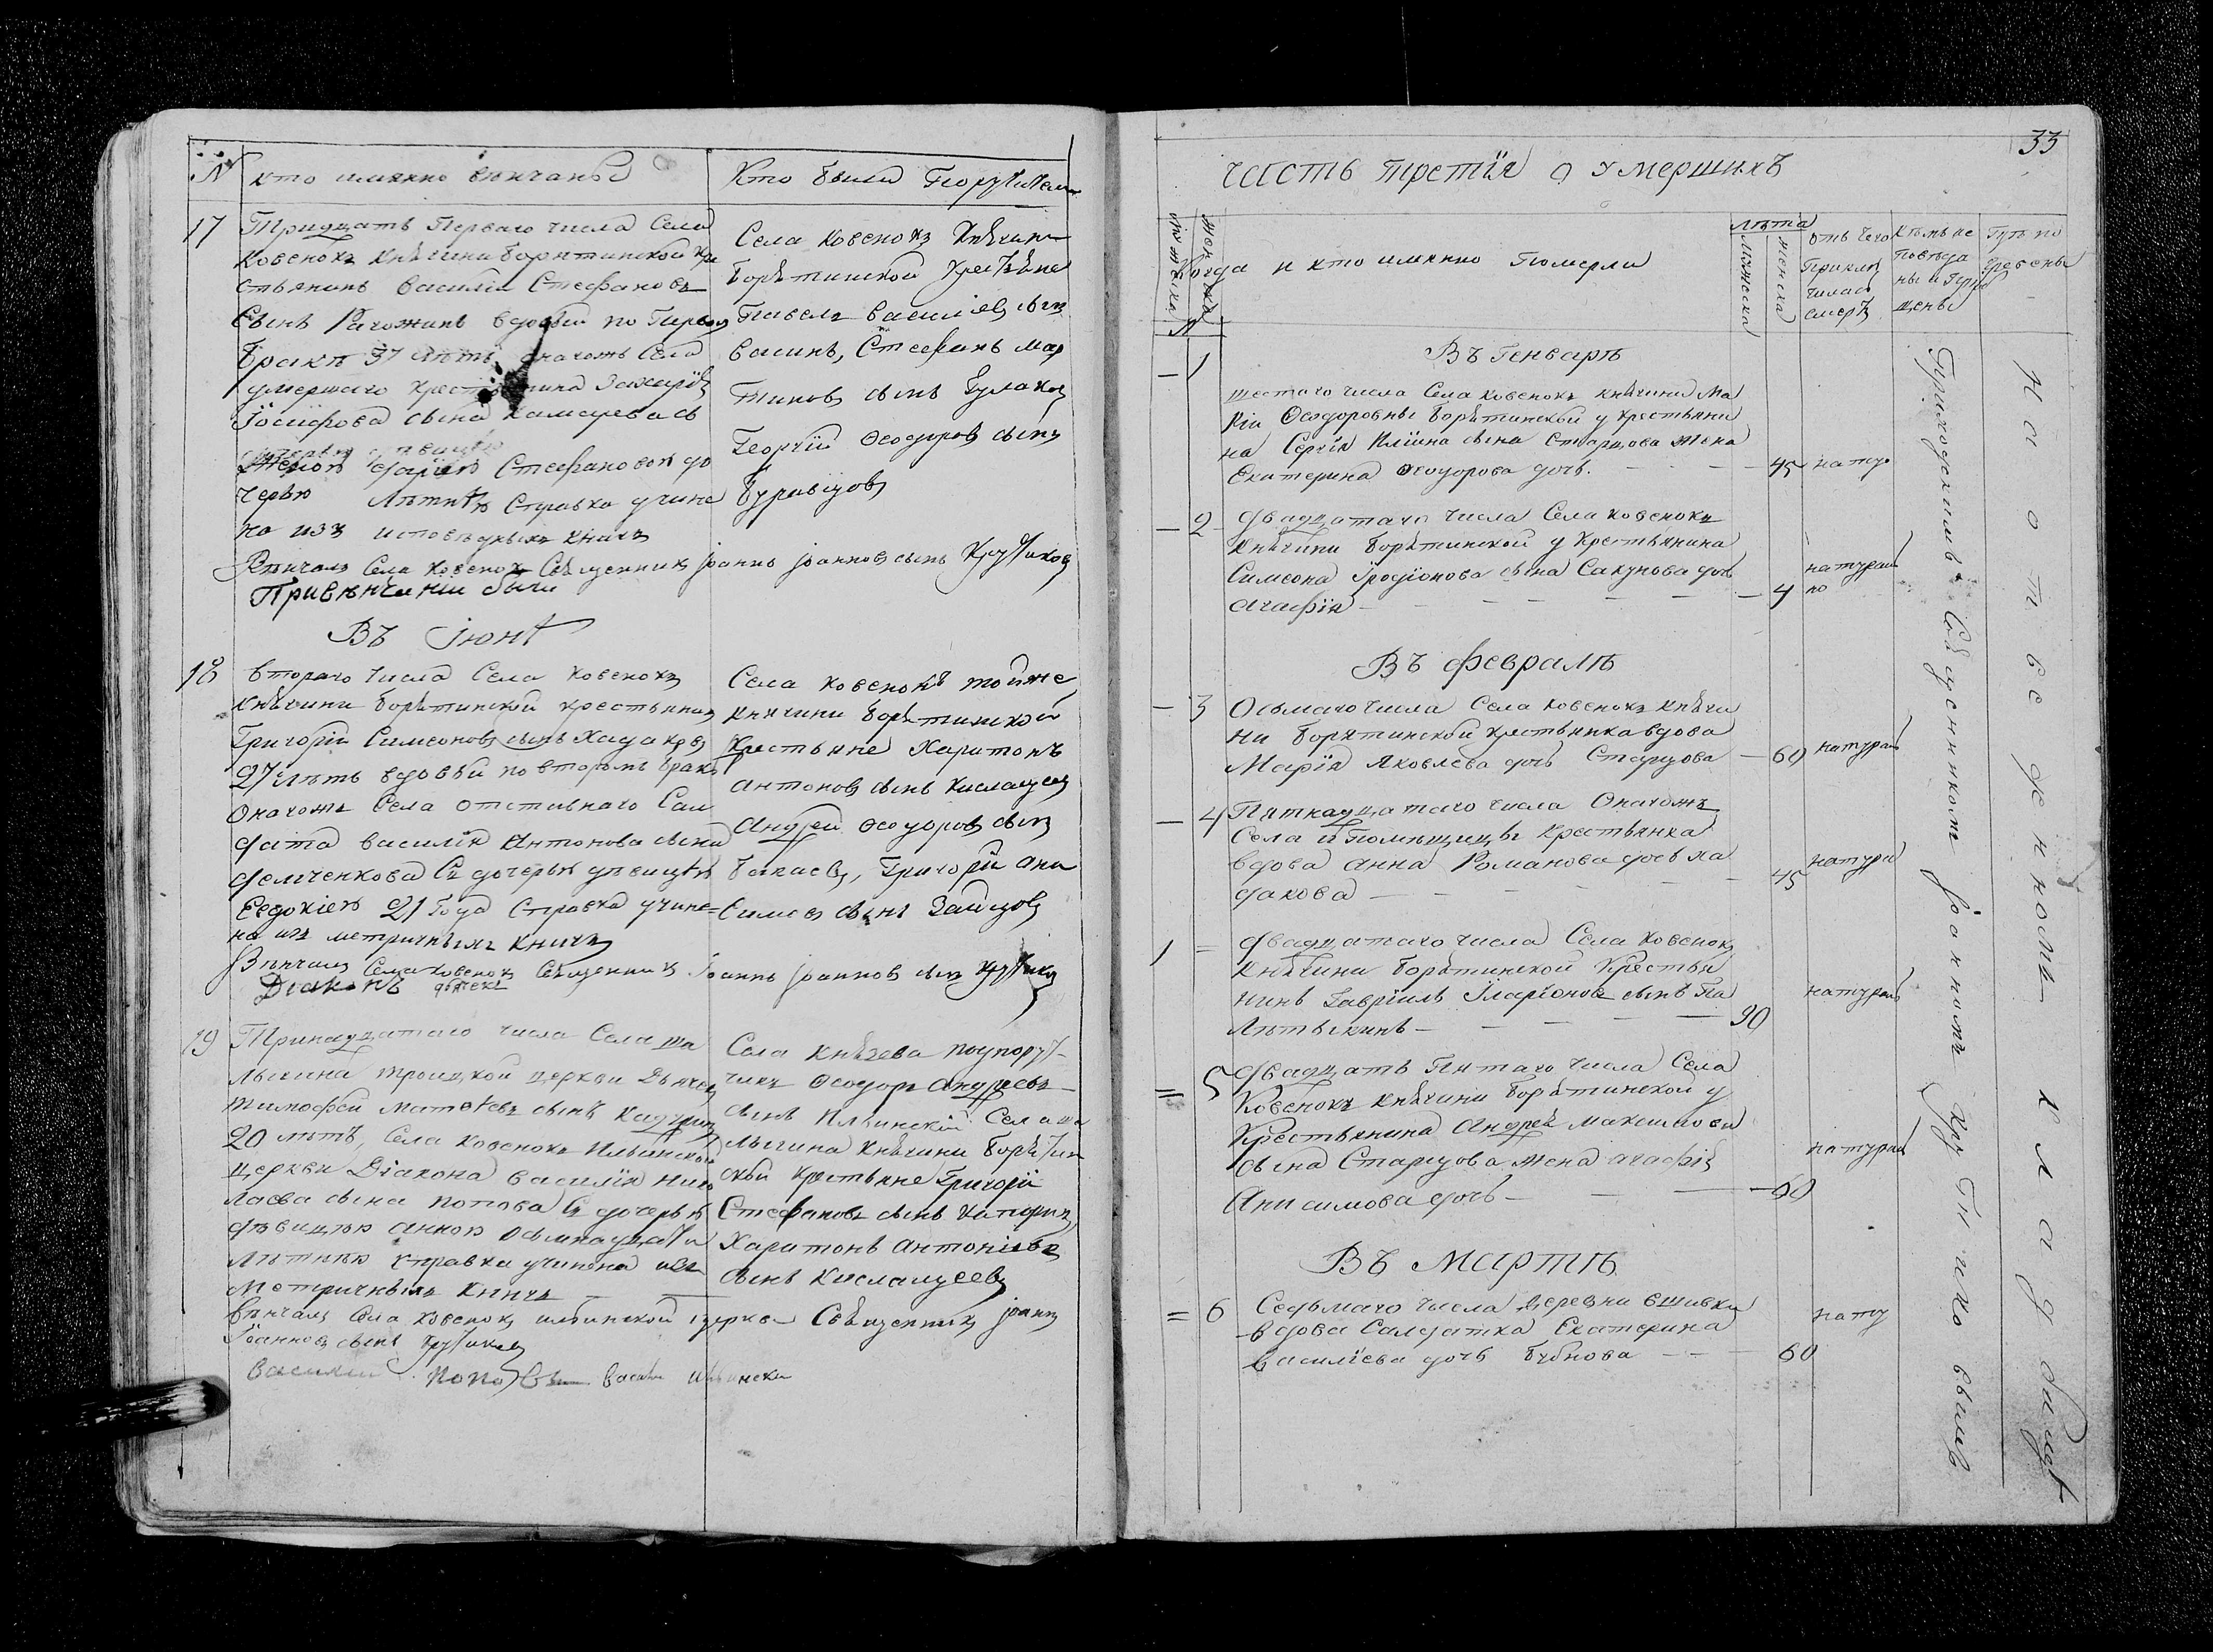 № кто имянно венчаны
Кто были Поручители
17 Тридцать Перваго числа Села
Ковенокъ Княгини Борятинской кре
стьянинъ Василій Стефановъ
Сынъ Рагожинъ вдовый по Первом
бракѣ 37 лѣтъ, онагожъ Села
умершаго крестьянина Захарія
Іосифова сына
Стефановой до
черью Лѣтнею Справка учине
на изъ исповѣдныхъ книгъ
Вѣнчалъ Села Ковенокъ Священникъ Іоаннъ Іоанновъ сынъ Крутиковъ
При вѣнчаніи были
Села Ковенокъ Княгини
Борятинской Крестьяне
Павелъ Васильевъ сынъ
Васинъ, Стефанъ Мар
тиновъ сынъ Гулаковъ
Георгій Феодоровъ сынъ
Буравцовъ
Въ Іюнѣ
18 втораго числа Села Ковенокъ
Княгини Борятинской крестьянинъ
Григорій Симеоновъ сынъ Хадаковъ
27 лѣтъ вдовый по второмъ бракѣ
Онагожъ Села отставнаго Сал
дата Василія Антонова сына
Демченкова Съ дочерью дѣвицею
Евдокіею 21 года Справка учине=
на изъ метричныхъ книгъ
Вѣнчалъ Села Ковенокъ Священникъ Іоаннъ Іоанновъ сынъ Крутиковъ
Діаконъ
Села Ковенокъ тойже
Княгини Борятинской
Крестьяне Харитонъ
Антоновъ сынъ Кислацеевъ
Андрей Феодоровъ сынъ
Бакаевъ, Григорій Ани
симовъ сынъ Зайцовъ
19 Тринадцатаго числа Села ша
лыгина троицкой церкви Дьячекъ
Тимофей Матѳеевъ сынъ
20 лѣтъ, Села Ковенокъ Ильинской
церкви Діакона Василія Нико
лаева сына Попова Съ дочерью
дѣвицею Анною осьмнадцати
лѣтнею справка учинена изъ
Метричныхъ Книгъ
Вѣнчалъ Села Ковенокъ ильинской церкви Священникъ Іоаннъ
Іоанновъ сынъ Крутиковъ
Василий Попов
Села Княжева подпорут-
чикъ Феодоръ Андреевъ
сынъ Ильинскій Села ша
лыгина Княгини Борятин
ской крестьяне Григорій
Стефановъ сынъ
Харитонъ Антоніевъ
сынъ Кислацеевъ
33
часть третія о умершихъ
мужеска
женска
Когда и кто имянно Померли
Лѣта
мужеска
женска
отъ чего
Приклю
чилась
смерть
Кѣмъ ис
повѣда
ны и Прио
щены
Гдѣ по
гребены
№
Въ Генварѣ
1 шестаго числа Села Ковенокъ княгини Ма
ріи Феодоровны Борятинской у крестьяни
на Сергія Иліина сына Старцова жена
Екатерина Феодорова дочь. 45 нату
2 двадцатаго числа Села Ковенокъ
Княгини Борятинской у крестьянина
Симеона Іродіонова сына Сакунова дочь
Агафія 4 натураль
но
Въ февралѣ
3 Осьмаго числа Села Ковенокъ Княги
ни Борятинской крестьянка вдова
Марія Яковлева дочь Старцова 60 натурал
4 Пятнадцатаго числа Онагожъ
Села и Помѣщицы Крестьянка
вдова Анна Романова дочь ха
дакова 45 натурал
1 = двадцатаго числа Села Ковенокъ
Княгини Борятинской Крестья
нинъ Гавріилъ Іларіоновъ сынъ Па
90 натурал
= 5 двадцать Пятаго числа Села
Ковенокъ княгини Борятинской у
Крестьянина Андрея Максимова
сына Старцова жена Агафія
Анисимова дочь 60 натурал
Въ Мартѣ
= 6 Седьмаго числа деревни
вдова Салдатка Екатерина
Василіева дочь Бубнова 60 нату
Приходскимъ Священникомъ Іоанномъ Крутиковымъ
На отведенномъ кладбищѣ